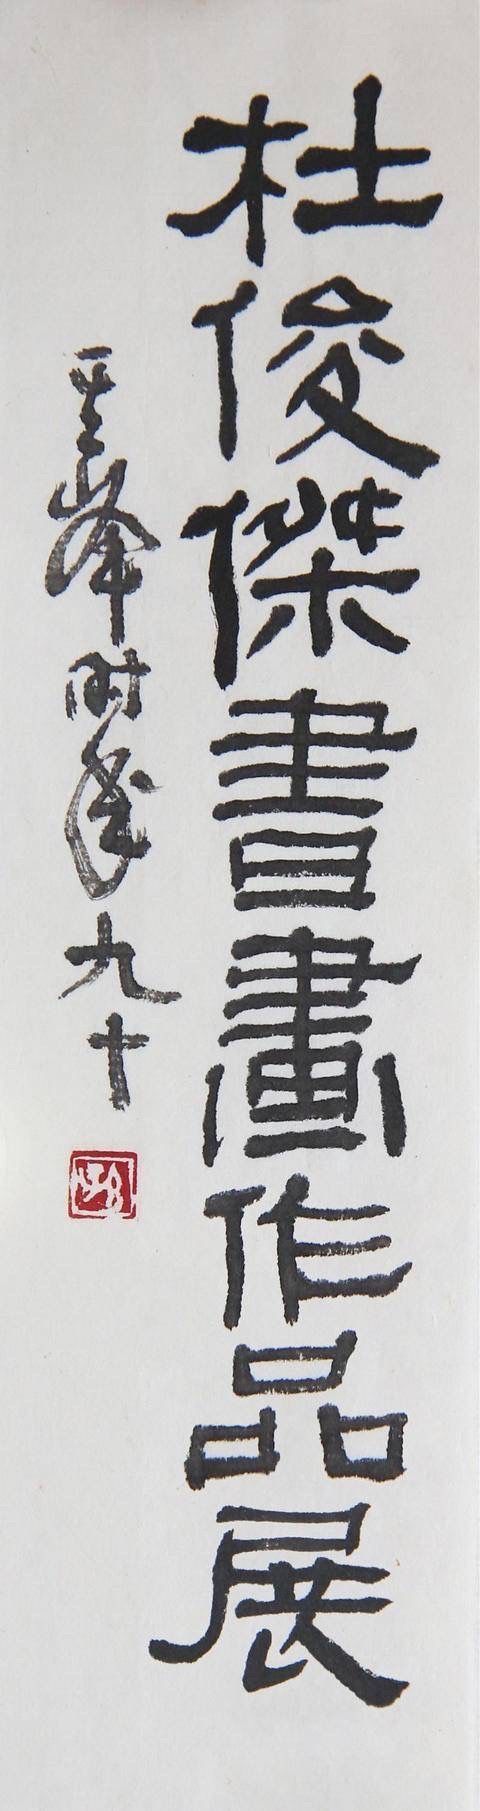 杜俊傑書畫作品展
其峰时年九十